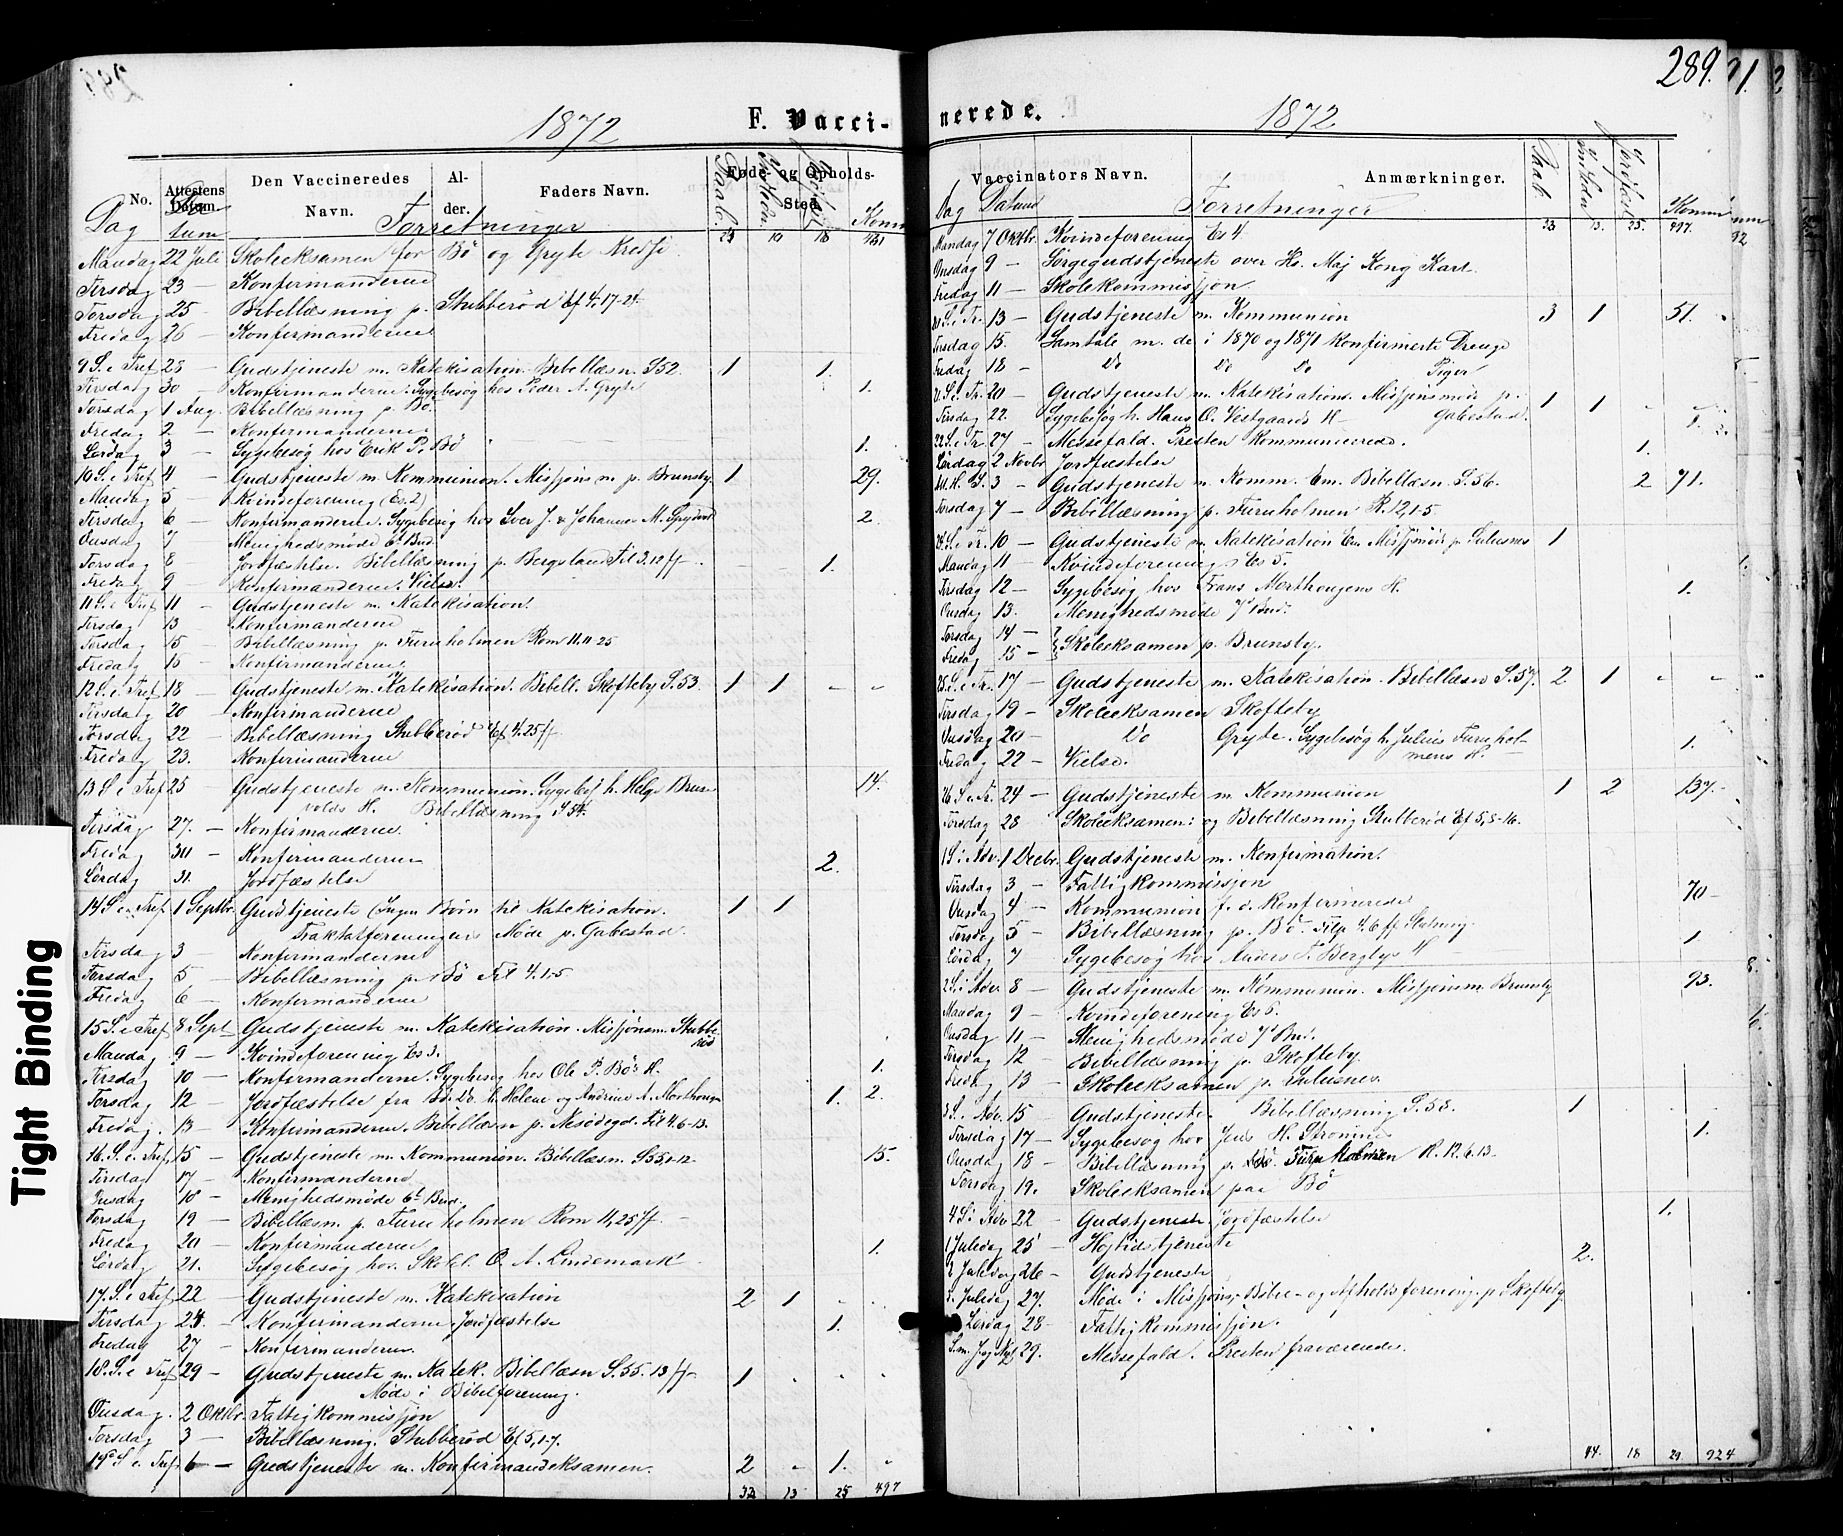 289.
1872
F. Vacci-
nerede.
1872
No.
Attestens Datum.
Den Vaccineredes Navn.
Al-der.
Faders Navn.
Føde- og Opholds-Sted.
Vaccinators Navn.
Anmærkninger.
Dag
Forretninger
Daab.
Komm
Mandag 22 Juli Skoleeksamen for Bø og Gryte Kredse
Tirsdag 23 — Konfirmanderne
Torsdag 25 — Bibellæsning p. Stubberød Ef 4.17-24
Fredag 26 — Konfirmanderne
9 S. e Tref 28 — Gudstjeneste m. Katekisation. Bibellæsn. S 52. 1 1.
Tirsdag 30 — Konfirmanderne. Sygebesøg hos Peder A. Gryte 1.
Torsdag 1 Aug. Bibellæsning p. Bø.
Fredag 2 — Konfirmanderne
Lørdag 3 — Sygebesøg hos Erik P. Bø 1.
10 S. e Tref 4 — Gudstjeneste m Kommunion. Missjons m p. Brunsby 1 29.
Mandag 5 — Kvindeforening (Es. 2)
Tirsdag 6 — Konfirmanderne. Sygebesøg hos Iver J. & Johannes M. 2.
Onsdag 7 Menighedsmøde 6te Bud
Torsdag 8 — Jordfæstelse. Bibellæsning p. Bergsland Fil 3.12 ff. 1.
Fredag 9 — Konfirmanderne. Vielse.
11 S. e Tref 11 — Gudstjeneste m. Katekisation.
Tirsdag 13 Konfirmanderne
Torsdag 15 — Bibellæsning p. Furuholmen Rom 11,11-25
Fredag 16 — Konfirmanderne
12 S. e Tref 18 — Gudstjeneste m. Katekisation. Bibell. Skofteby S. 53. 1 1
Tirsdag 20 — Konfirmanderne
Torsdag 22 — Bibellæsning Stubberød Ef. 4.25 ff
Fredag 23. Konfirmanderne
13 S e Tref 25 Gudstjeneste m. Kommunion. Sygebes h. Helge Brune 14.
volds H. Bibellæsning S 54.
Tirsdag 27. — Konfirmanderne.
Fredag 30 — Konfirmanderne
Lørdag 31. Jordfæstelse 2.
14 S e Tref 1 Septbr. Gudstjeneste (Ingen Børn til Katekisation. 1 1
Traktatforeningens Møde p. Gabestad.
Tirsdag 3 — Konfirmanderne
Torsdag 5 — Bibellæsning p. Bø Fil 4.1-5
Fredag 6 — Konfirmanderne
15 S. e Tref 8 Sept Gudstjeneste m. Katekisation. Missjonsm. Stubberød
Mandag 9 — Kvindeforening Es 3.
Tirsdag 10 — Konfirmanderne. Sygebesøg hos Ole P. Bøs H. 1.
Torsdag 12 — Jordfæstelse fra Bø. Do. h. Helene og Andrine A. Morthougen 1. 2.
Fredag. 13 — Konfirmanderne. Bibellæsn p. Nesodegd. Fil 4.6-13.
16. S. e. Tref. 15 — Gudstjeneste m. Kommunion. Bibellæsn. S 55,1-12 15.
Tirsdag 17 — Konfirmanderne
Onsdag 18 — Menighedsmøde 6te Bud.
Torsdag 19 — Bibellæsn. p. Furuholmen Rom 11,25 ff. —
Fredag 20 — Konfirmanderne
Lørdag 21. Sygebesøg hos Skohl. O. A. Lindemark 1.
17 S. e Tref 22 — Gudstjeneste m. Katekisation 2 1
Tirsdag 24. — Konfirmanderne. Jordfæstelse 1.
Fredag 27 — Konfirmanderne.
18. S. e Tref 29 — Gudstjeneste m. Katek. Bibellæsn S. 55. 13 ff — 1
Møde i Bibelforening.
Onsdag. 2 Oktbr. Fattigkommissjon
Torsdag 3 — Bibellæsning. Stubberød Ef 5,1-7.
19 S e. Tref. 6 — Gudstjeneste m. Konfirmandeksamen. 2 1.
32 13 25 497
Dag Datum Forretninger
Daab.
Komm
33 13. 25. 497.
Mandag 7 Oktbr. Kvindeforening Es 4.
Onsdag 9 — Sørgegudstjeneste over Hs. Maj Kong Karl.
Fredag 11 — Skolekommissjon
20 S. e Tr. 13 — Gudstjeneste m. Kommunion 3 1 51.
Tirsdag 15. Samtale m. de i 1870 og 1871 konfirmerte Drenge
Fredag 18 — Do Do Do Piger
21. S. e Tr. 20 — Gudstjeneste m. Katekisation. Missjonsmøde p. Gabestad. 1 1
Tirsdag 22. Sygebesøg h. Hans O. Vestgaards H — 1.
22 S. e Tr. 27 — Messefald. Presten kommunicerede.
Lørdag 2 Novbr Jordfæstelse 1.
All. H. S. 3 — Gudstjeneste m Komm. Em. Bibellæsn. S. 56. 2 71.
Torsdag 7 — Bibellæsning p. Furuholmen R. 12,1-5
24. S. e Tr. 10 — Gudstjeneste m. Katekisation Em Missjmøde p. Sulusnes 1
Mandag 11 — Kvindeforening Es 5.
Tirsdag 12 — Sygebesøg hos Frans Morthougens H. 1.
Onsdag 13. Menighedsmøde 7de Bud.
Torsdag 14 —
Fredag 15 — } Skoleeksamen p. Brunsby.
25 S. e Tr. 17 — Gudstjeneste m. Katekisation. Bibellæsn S. 57. 2 1
Tirsdag 19 — Skoleeksamen Skofteby
Onsdag 20 — Do Gryte. Sygebesøg h. Julius Furuhol-
mens H. 1.
Fredag 22 — Vielse.
26 S. e Tr. 24 — Gudstjeneste m. Kommunion 1 2 137.
Torsdag 28 Skoleeksamen: og Bibellæsning Stubberød Ef 5,8-16.
1 S i Adv. 1 Decbr. Gudstjeneste m. Konfirmation.
Tirsdag 3 — Fattigkommissjon
Onsdag 4 — Kommunion f. d. konfirmerede 70 —
Torsdag 5 — Bibellæsning p. Bø. Filp 4.6 ff Slutning
Lørdag 7 Sygebesøg hos Anders T. Berglys H 1.
2 S. i Adv 8 — Gudstjeneste m. Kommunion. Missjonsm. Brunsby 93.
Mandag 9 — Kvindeforening Es 6.
Onsdag 11 — Menighedsmøde 7de Bud.
Torsdag 12 — Bibellæsning p. Skofteby.
Fredag 13 — Skoleeksamen p. Sulusnes.
3 S. i Adv. 15 — Gudstjeneste. Bibellæsning S. 58. 1
Tirsdag 17 — Sygebesøg hos Jens H. 1.
Onsdag 18 — Bibellæsning p. Furuholmen R. 12. 6.13.
Torsdag 19. Skoleeksamen paa Bø
4 S i Adv 22 — Gudstjeneste. Jordfæstelse 1.
1 Juledag 25 — Højtidstjeneste 2.
2 Juledag 26 — Gudstjeneste
3. Juledag 27. Møde i Missjons- Bibel- og Afholdsforening. p. Skofteby.
Lørdag 28 — Fattigkommissjon.
S. m. J og Nyt 29. Messefald. Presten fraværende.
44. 18 29 924
Tight Binding